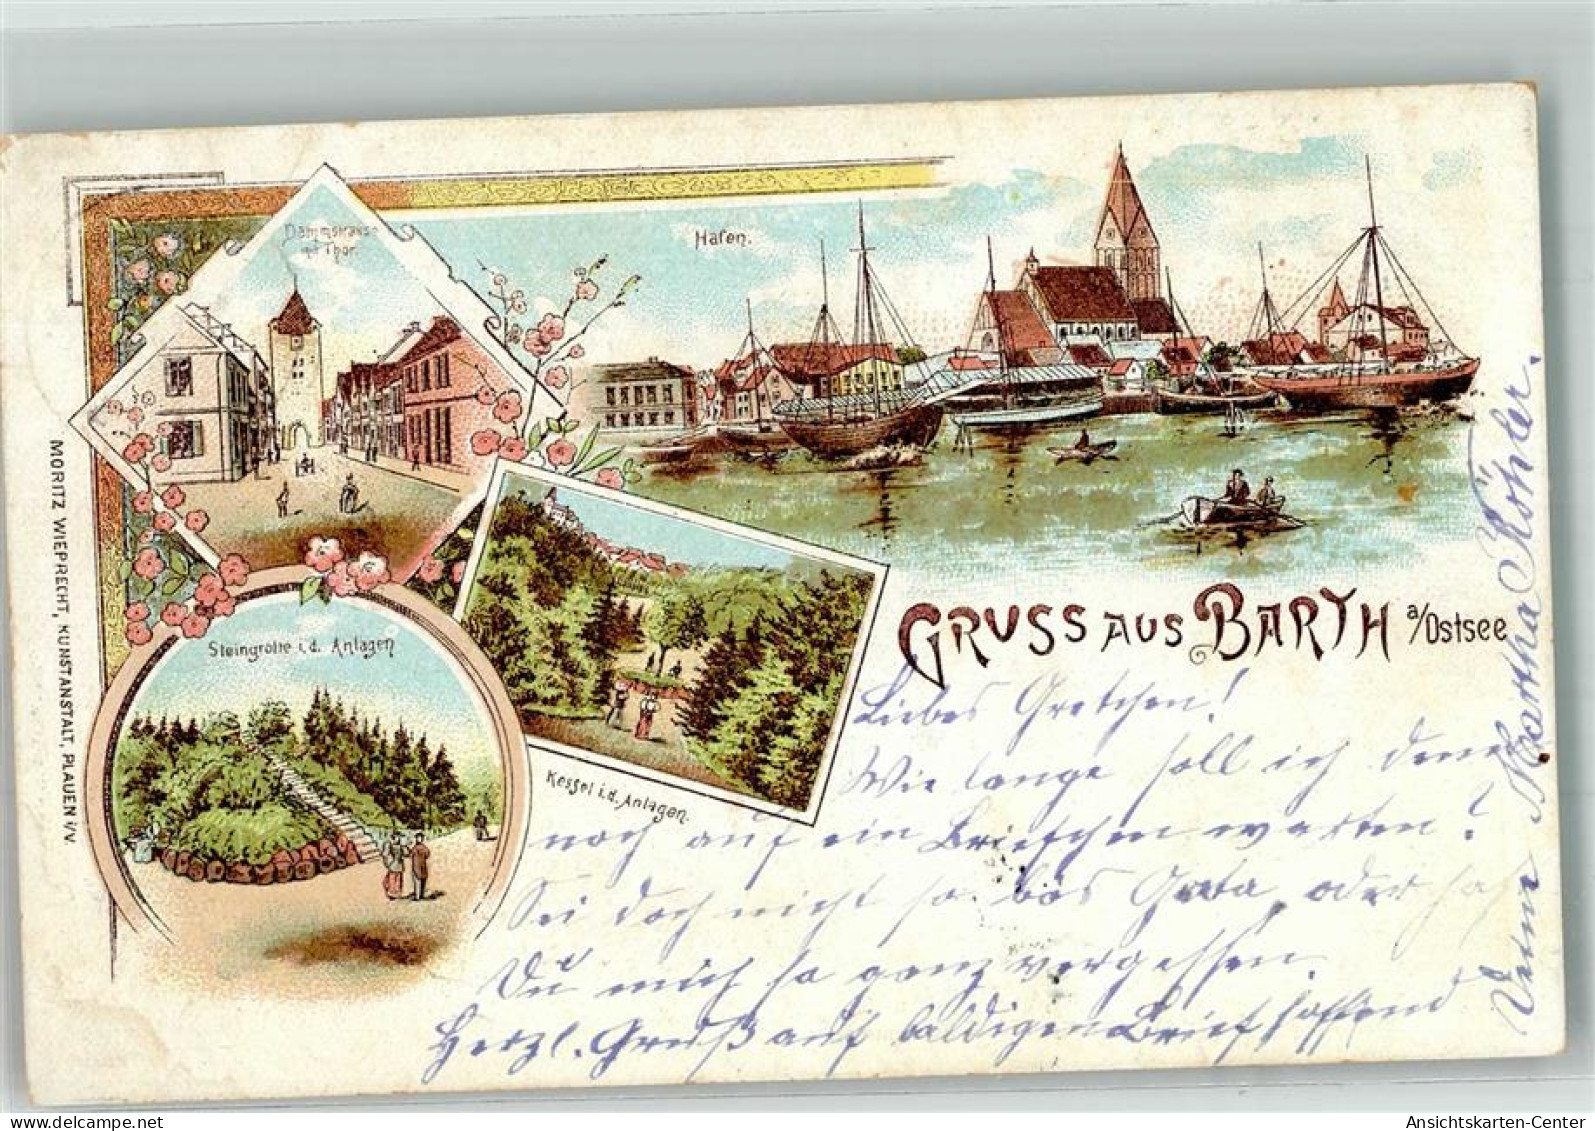 Dammstrasse
mit Thor
Hafen.
Steingrotte i.d. Anlagen
Kessel i.d. Anlagen.
GRUSS AUS BARTH a/Ostsee
MORITZ WIEPRECHT, KUNSTANSTALT, PLAUEN i/V
Liebes Gretchen!
Wie lange soll ich denn
noch auf ein Briefchen warten?
Sei doch nicht so bös Greta, oder hast
Du mich so ganz vergessen.
Herzl. Gruß auf baldigen Brief hoffend
Deine Martha Köhler.
delcampe.net
Ansichtskarten-Center